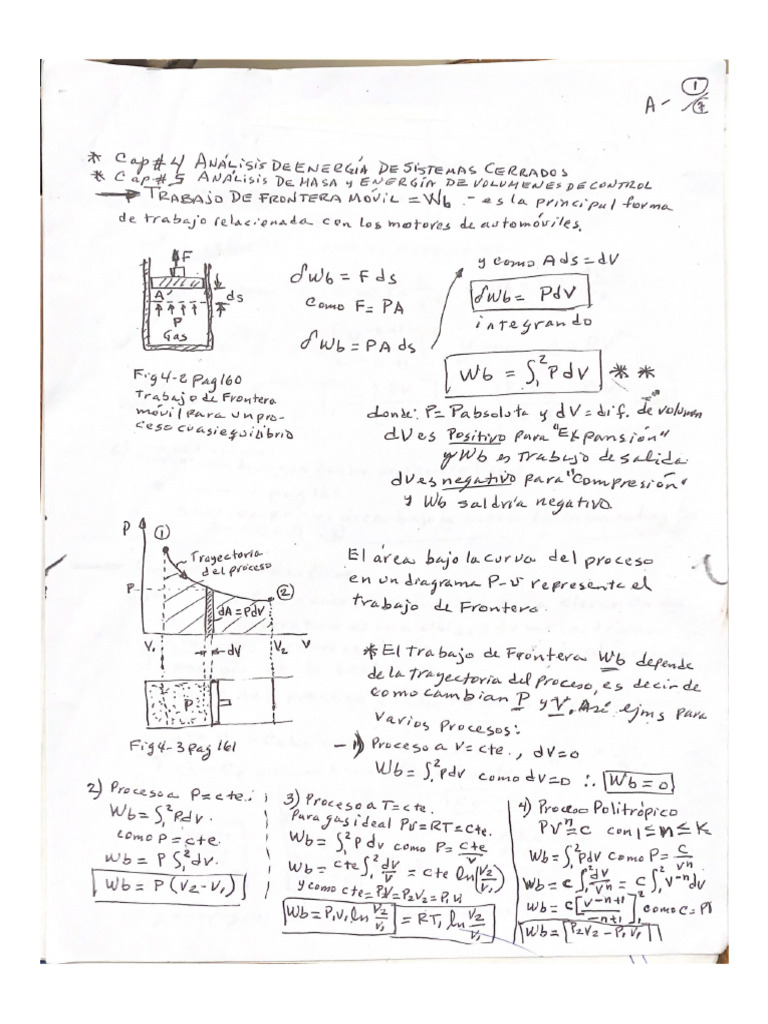 A- 1/7
* Cap#4 ANÁLISIS DE ENERGÍA DE SISTEMAS CERRADOS
* Cap#5 ANÁLISIS DE MASA y ENERGÍA DE VOLUMENES DE CONTROL
→ TRABAJO DE FRONTERA MÓVIL = Wb .- es la principal forma
de trabajo relacionada con los motores de automóviles.
F
A
ds
P
Gas
Fig 4-2 pag 160
Trabajo de Frontera
móvil para un pro-
ceso cuasiequilibrio
δWb = F ds
como F = PA
δWb = PA ds
y como A ds = dV
δWb = PdV
integrando
Wb = ∫₁² P dV * *
donde: P = Pabsoluta y dV = dif. de volumen
dV es Positivo para "Expansión"
y Wb es trabajo de salida
dV es negativo para "Compresión"
y Wb saldría negativo
P
①
Trayectoria
del proceso
P
②
dA = PdV
V₁
dV
V₂
V
P
Fig 4-3 pag 161
El área bajo la curva del proceso
en un diagrama P-v representa el
trabajo de Frontera.
* El trabajo de Frontera Wb depende
de la trayectoria del proceso, es decir de
como cambian P y V. Así ejms para
varios procesos:
1) Proceso a V = cte., dV = 0
Wb = ∫₁² pdv como dV = 0 ∴ Wb = 0
2) Proceso a P = cte.
Wb = ∫₁² Pdv.
como P = cte.
Wb = P ∫₁² dv.
Wb = P (V₂ - V₁)
3) Proceso a T = cte.
Para gas ideal PV = RT = cte.
Wb = ∫₁² P dv como P = cte/V
Wb = cte ∫₁² dV/V = cte ln(V₂/V₁)
y como cte = PV = P₂V₂ = P₁V₁
Wb = P₁V₁ ln V₂/V₁ = RT₁ ln V₂/V₁
4) Proceso Politrópico
PVⁿ = C con 1 ≤ n ≤ K
Wb = ∫₁² Pdv como P = C/Vⁿ
Wb = C ∫₁² dV/Vⁿ = C ∫₁² V⁻ⁿ dv
Wb = C [V⁻ⁿ⁺¹/-n+1]₁² como C = PV
Wb = [P₂V₂ - P₁V₁